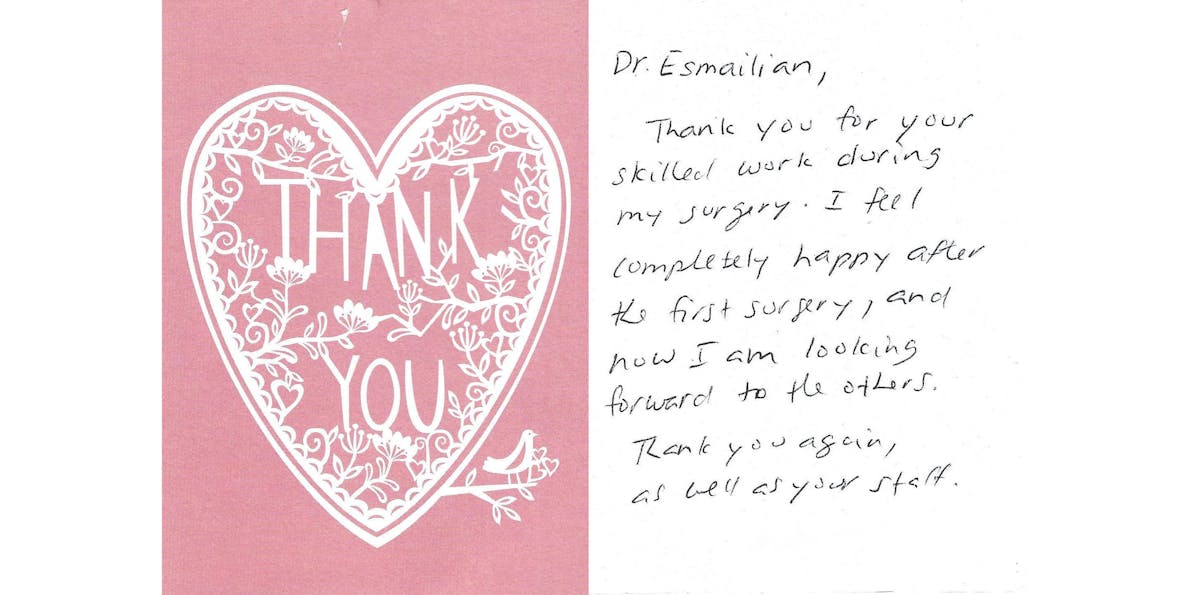 THANK
YOU
Dr. Esmailian,
Thank you for your
skilled work during
my surgery. I feel
completely happy after
the first surgery, and
now I am looking
forward to the others.
Thank you again,
as well as your staff.